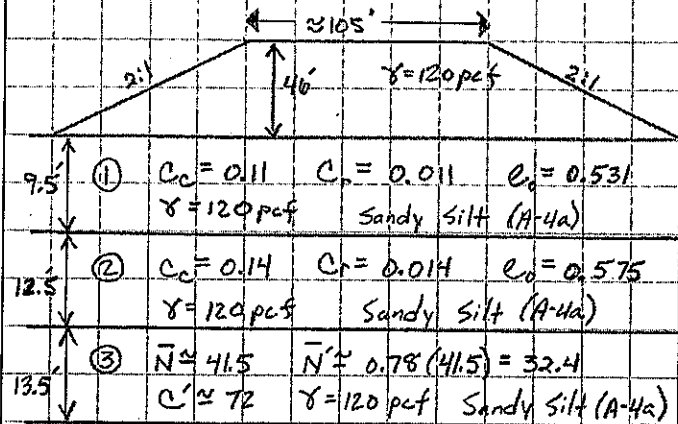 ≈105'
2:1 46' γ=120 pcf 2:1
9.5' ① Cc = 0.11 Cr = 0.011 e₀ = 0.531
γ = 120 pcf Sandy Silt (A-4a)
12.5' ② Cc = 0.14 Cr = 0.014 e₀ = 0.575
γ = 120 pcf Sandy Silt (A-4a)
13.5' ③ N̄ ≈ 41.5 N̄' ≈ 0.78 (41.5) = 32.4
C' ≈ 72 γ = 120 pcf Sandy Silt (A-4a)